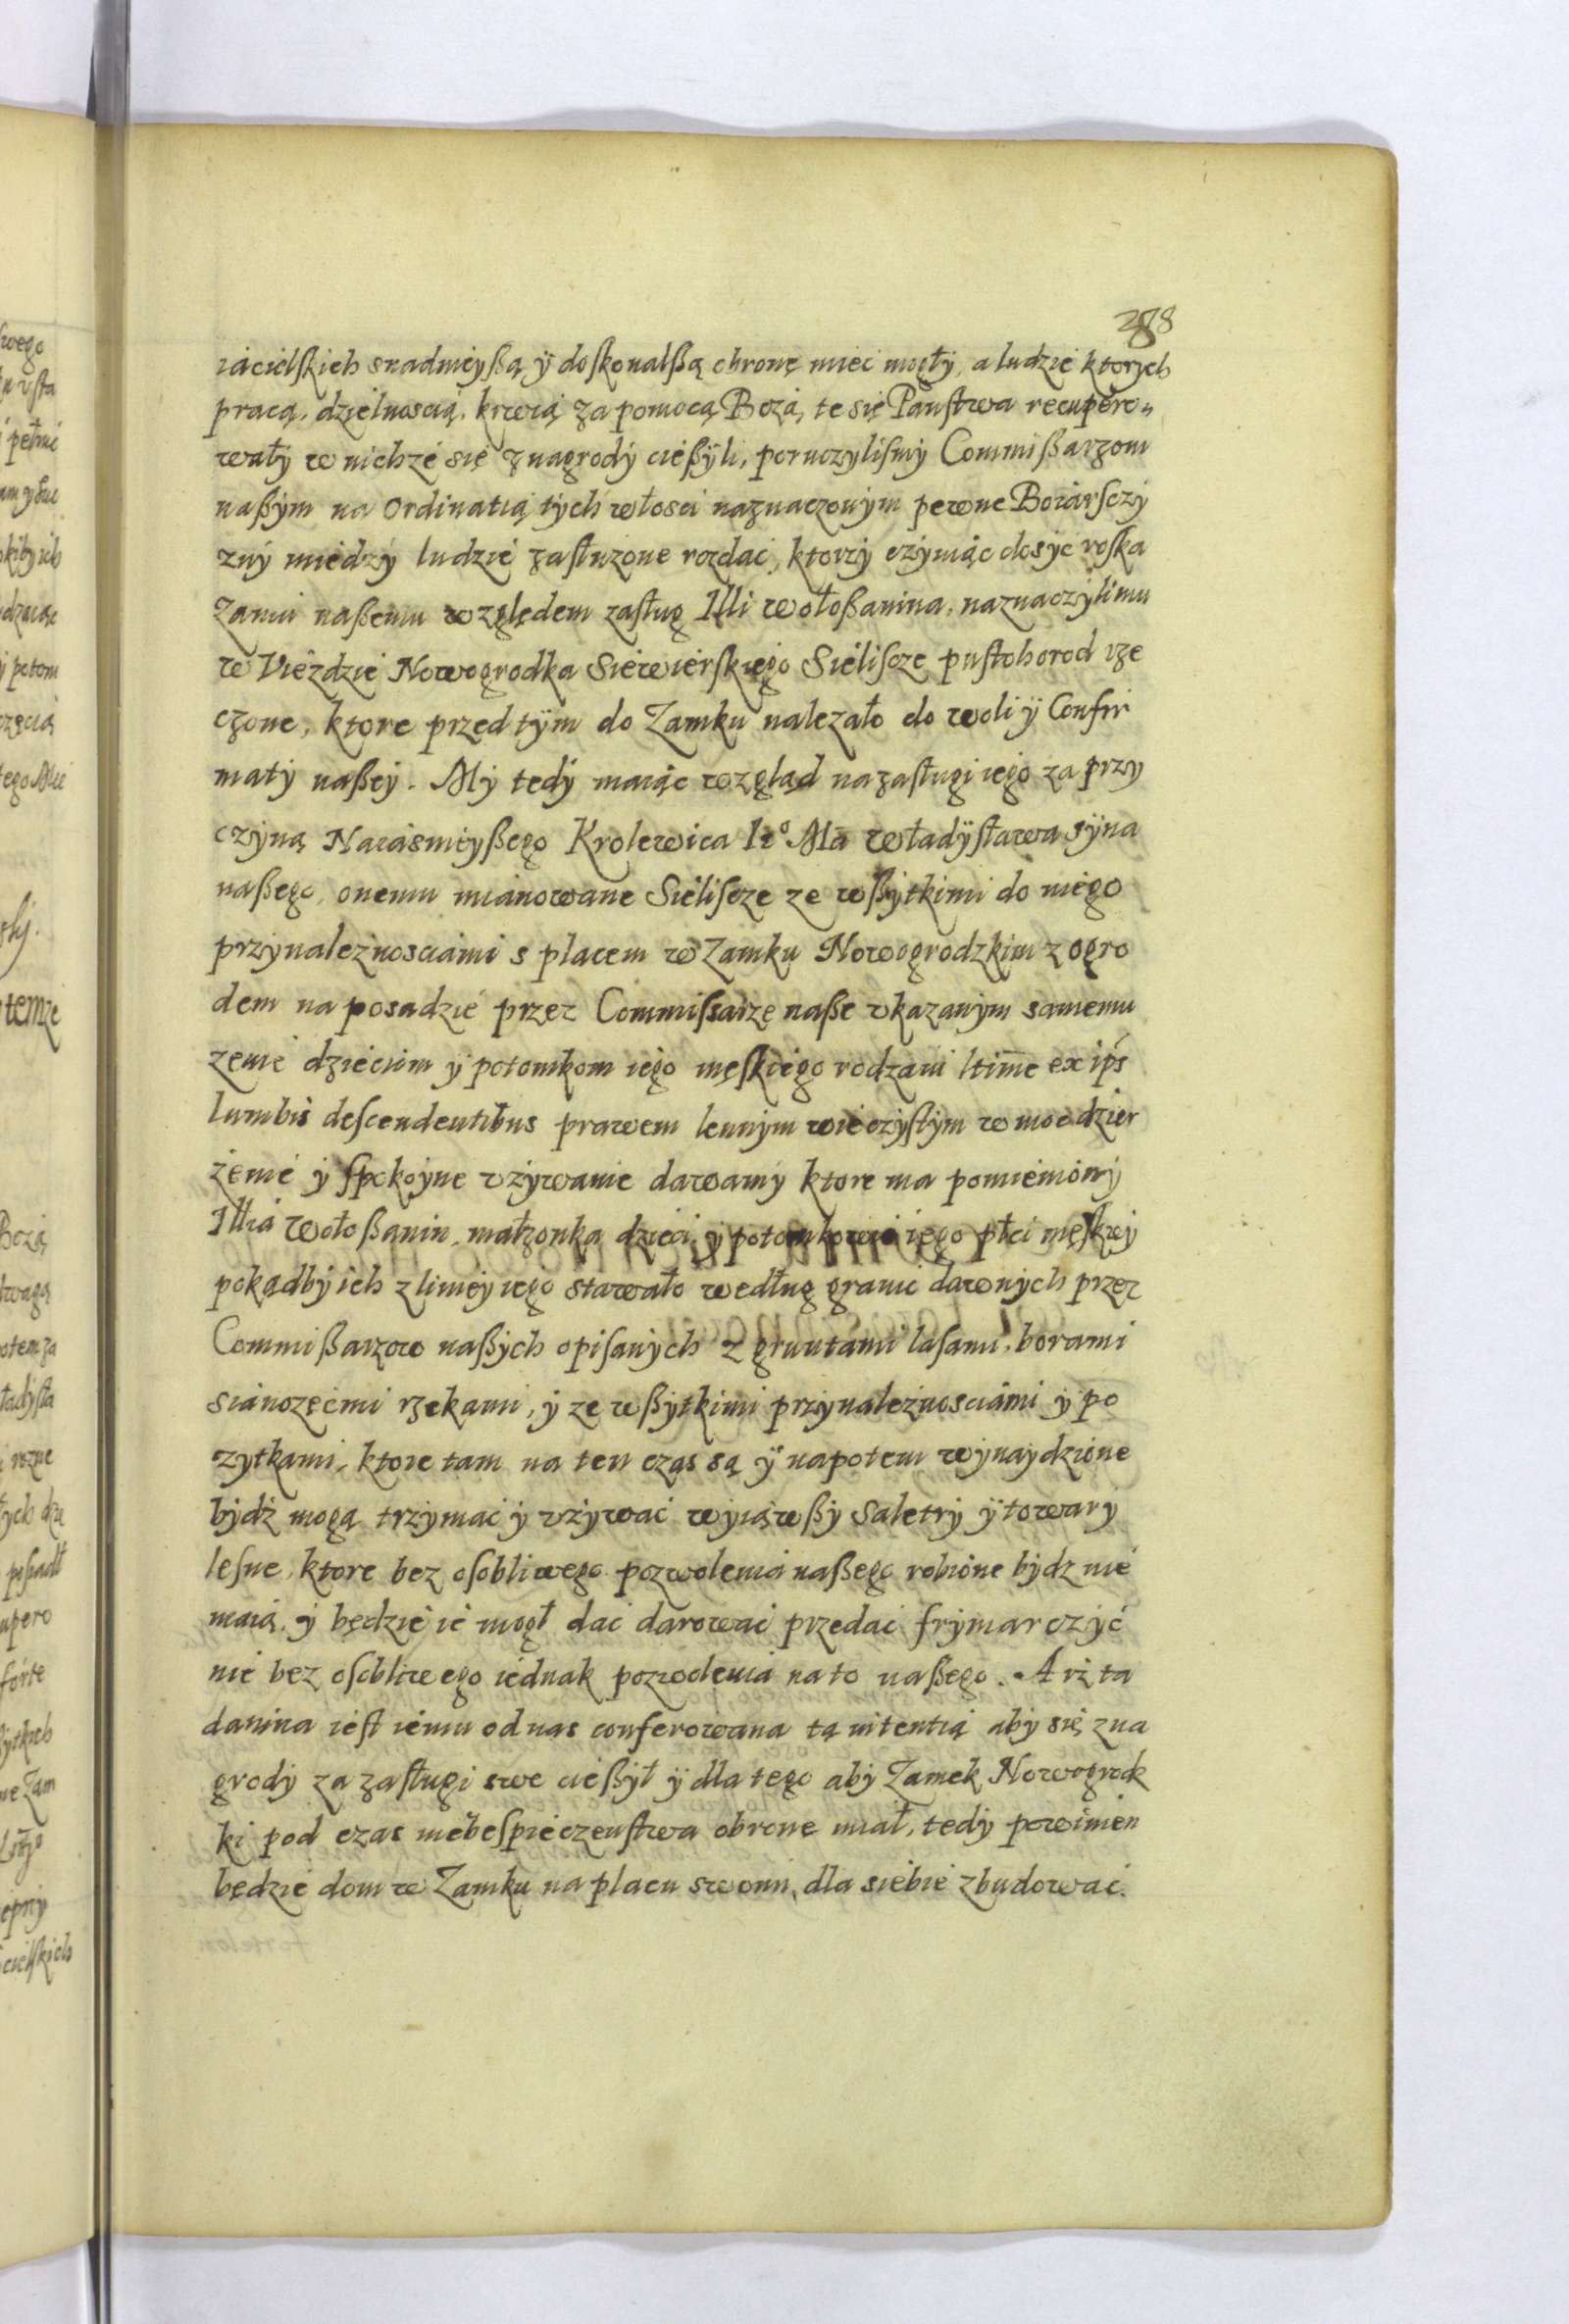 288
iacielskich snadnieyßą ÿ doskonalßą obronę mieć mogły, a ludzie ktorych
pracą, dzielnoscią, krwią za pomocą Bożą, te się Panstwa recupero„
wały w nichże się z nagrody cießÿli, poruczylismy Commißarzom
naßym na Ordinatią tych włosci naznaczonym pewne Boiarsczy
zny miedzy ludzie zasłużone rozdać, ktorzy czyniąc dosyć roska
zaniu naßemu względem zasług Illi Wołoßanina, naznaczyli mu
w Vieździe Nowogrodka Siewierskiego Sieliscze pustohorod rze
czone, ktore przed tÿm do Zamku nalezało do woli ÿ Confir
maty naßey. My tedÿ maiąc wzgląd na zasługi iego za przy
czyną Naiasnieyßego Krolewica Ie⁰ Mći Władÿsława sÿna
naßego, onemu mianowane Sieliscze ze wßytkimi do niego
przynależnosciami s placem w Zamku Nowogrodzkim z ogro
dem na posadzie przez Commissarze naße vkazanym samemu
żenie dzieciom ÿ potomkom iego męskiego rodzaiu ltime ex ips
lumbis descendentibus prawem lennym wieczystym w moc dzier
żenie y spokoyne vżywanie dawamy ktore ma pomieniony
Illia Wołoßanin, małżonka dzieci, y potomkowie iego płci męskiey
pokądby ich z liniey iego stawało według granic dawnych przez
Commißarzow naßych opisanych z gruntami lasami, borami
sianożęćmi rzekami, y ze wßytkimi przynależnosciami y po
żytkami, ktore tam na ten czas są ÿ napotem wynaydzione
bydź mogą trzymać y vżywać wyiąwßy Saletry ÿ towary
lesne, ktore bez osobliwego pozwolenia naßego robione bydz nie
maią, y będzie ie mogł dać darować przedać frymarczyć
nie bez osobliwego iednak pozwolenia na to naßego. A iż ta
danina iest iemu od nas conferowana tą intentią aby się z na
grody za zasługi swe cießył ÿ dla tego aby Zamek Nowogrodz
ki pod czas niebespieczenstwa obronę miał, tedy powinien
będzie dom w Zamku na placu swoim, dla siebie zbudować.